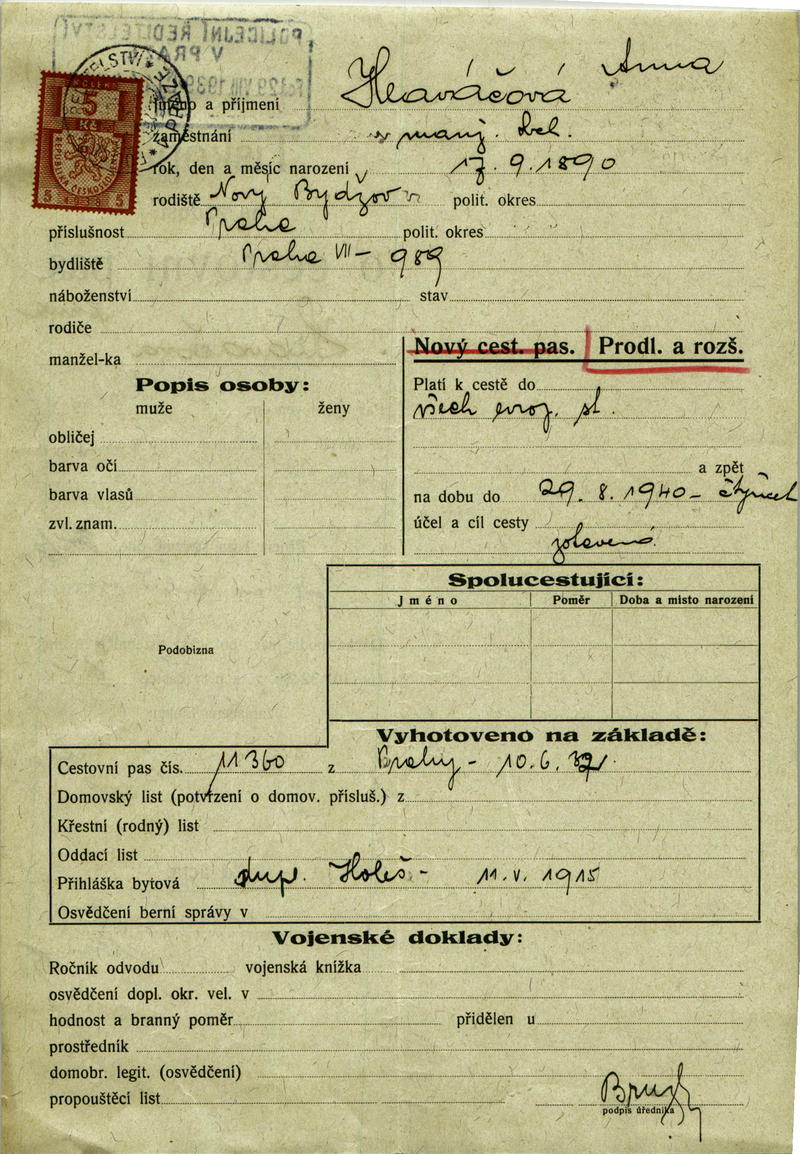 POLICEJNÍ ŘEDITELSTVÍ
V PRAZE
29 VIII 1939
KOLEK
5
Kč
REPUBLIKA ČESKOSLOVENSKÁ
5 1938 5
Jméno a příjmení Hlaváčová Anna
zaměstnání manž.
rok, den a měsíc narození 17. 9. 1890
rodiště Nový Bydžov polit. okres
příslušnost Praha polit. okres
bydliště Praha VII - 989
náboženství stav
rodiče
manžel-ka
Nový cest. pas. Prodl. a rozš.
Popis osoby:
muže ženy
obličej
barva očí
barva vlasů
zvl. znam.
Platí k cestě do
všech evrop. st.
a zpět
na dobu do 29. 8. 1940 -
účel a cíl cesty
Podobizna
Spolucestující:
Jméno Poměr Doba a místo narození
Vyhotoveno na základě:
Cestovní pas čís. 11360 z Prahy - 10. 6.
Domovský list (potvrzení o domov. přísluš.) z
Křestní (rodný) list
Oddací list
Přihláška bytová dup. Holeš - 11. V. 1915
Osvědčení berní správy v
Vojenské doklady:
Ročník odvodu vojenská knížka
osvědčení dopl. okr. vel. v
hodnost a branný poměr přidělen u
prostředník
domobr. legit. (osvědčení)
propouštěcí list
podpis úředníka